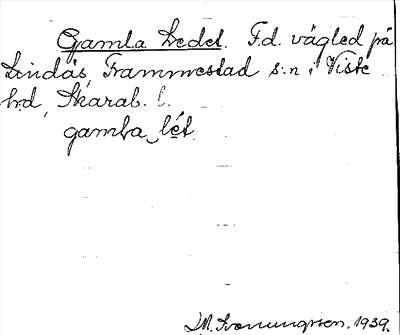 Gamla Ledet. F.d. vägled på
Lindås, Frammestad s:n i Viste
hd, Skarab. l.
gamla lét
1939.